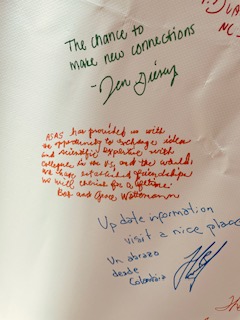 The chance to
make new connections
ASAS has provided us with
an opportunity to exchange ideas
and scientific expertise with
colleagues in the US and the world.
We have established friendships
we will cherish for a lifetime.
Bob and Grace
Update information
visit a nice place
Un abrazo
desde
Colombia